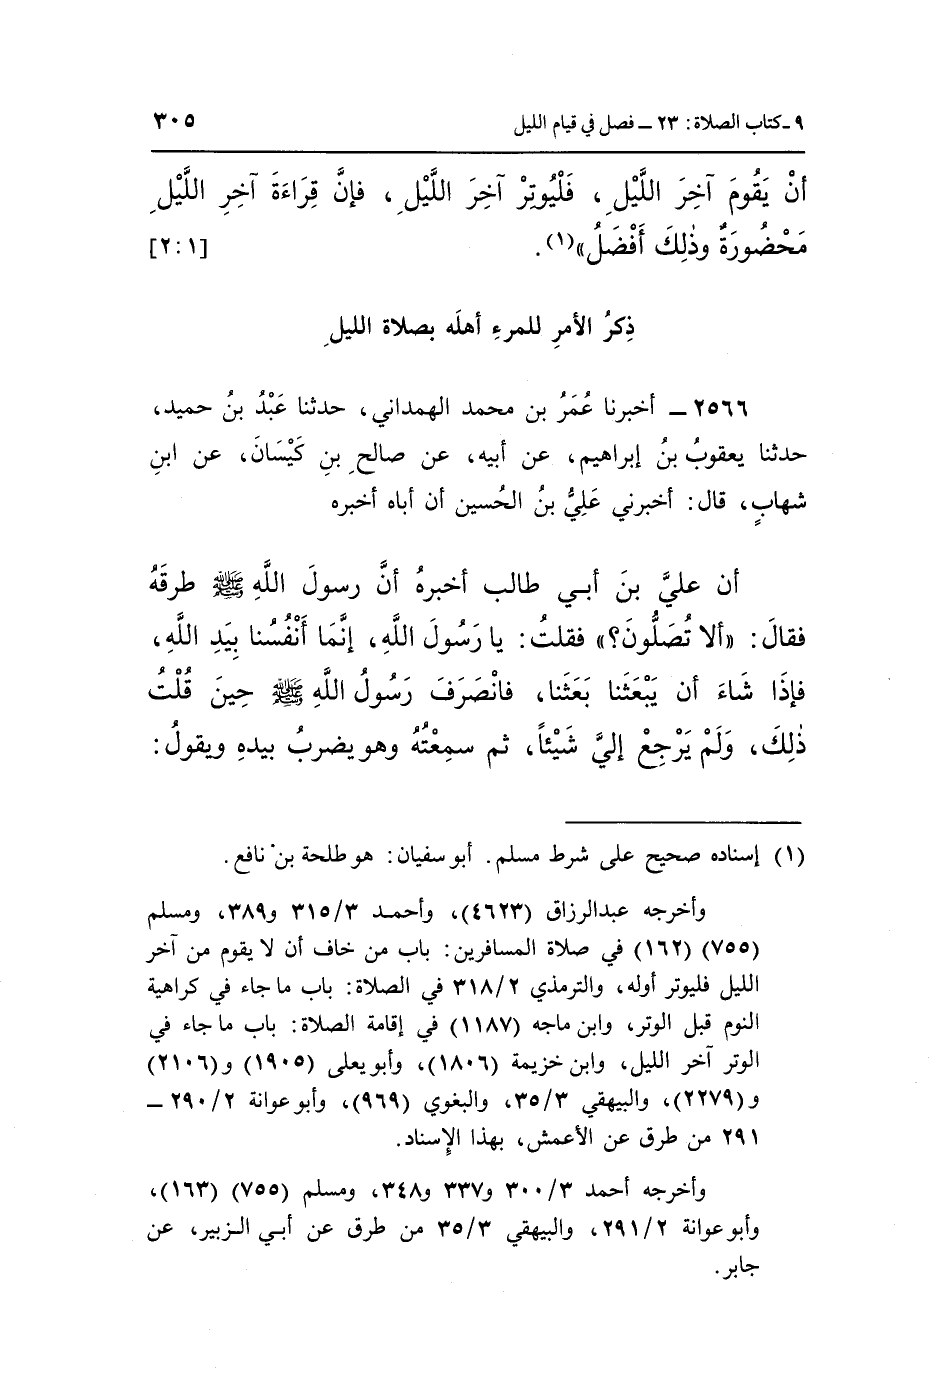 ٩ـ كتاب الصلاة: ٢٣ ــ فصل في قيام الليل ٣٠٥
أنْ يَقُومَ آخِرَ اللَّيْلِ، فَلْيُوتِرْ آخِرَ اللَّيْلِ، فإنَّ قِرَاءَةَ آخِرِ اللَّيْلِ
مَحْضُورَةٌ وذٰلِكَ أَفْضَلُ»(١). [٢:١]
ذِكرُ الأمرِ للمرءِ أهلَه بصلاة الليلِ
٢٥٦٦ ــ أخبرنا عُمَرُ بن محمد الهمداني، حدثنا عَبْدُ بنُ حميد،
حدثنا يعقوبُ بنُ إبراهيم، عن أبيه، عن صالحِ بنِ كَيْسَانَ، عن ابنِ
شهابٍ، قال: أخبرني عَلِيُّ بنُ الحُسين أن أباه أخبره
أن عليَّ بنَ أبـي طالب أخبرهُ أنَّ رسولَ اللَّهِ ﷺ طرقَهُ
فقالَ: «ألا تُصَلُّونَ؟» فقلتُ: يا رَسُولَ اللَّهِ، إنَّمَا أَنْفُسُنا بِيَدِ اللَّهِ،
فإذَا شَاءَ أن يَبْعَثَنا بَعَثَنا، فانْصَرَفَ رَسُولُ اللَّهِ ﷺ حِينَ قُلْتُ
ذٰلِكَ، وَلَمْ يَرْجِعْ إليَّ شَيْئاً، ثم سمِعْتُهُ وهو يضربُ بيدهِ ويقولُ:
(١) إسناده صحيح على شرط مسلم. أبو سفيان: هو طلحة بن نافع.
وأخرجه عبدالرزاق (٤٦٢٣)، وأحمـد ٣١٥/٣ و٣٨٩، ومسلم
(٧٥٥) (١٦٢) في صلاة المسافرين: باب من خاف أن لا يقوم من آخر
الليل فليوتر أوله، والترمذي ٣١٨/٢ في الصلاة: باب ما جاء في كراهية
النوم قبل الوتر، وابن ماجه (١١٨٧) في إقامة الصلاة: باب ما جاء في
الوتر آخر الليل، وابن خزيمة (١٨٠٦)، وأبو يعلى (١٩٠٥) و(٢١٠٦)
و(٢٢٧٩)، والبيهقي ٣٥/٣، والبغوي (٩٦٩)، وأبو عوانة ٢٩٠/٢ ــ
٢٩١ من طرق عن الأعمش، بهذا الإِسناد.
وأخرجه أحمد ٣٠٠/٣ و٣٣٧ و٣٤٨، ومسلم (٧٥٥) (١٦٣)،
وأبو عوانة ٢٩١/٢، والبيهقي ٣٥/٣ من طرق عن أبـي الـزبير، عن
جابر.